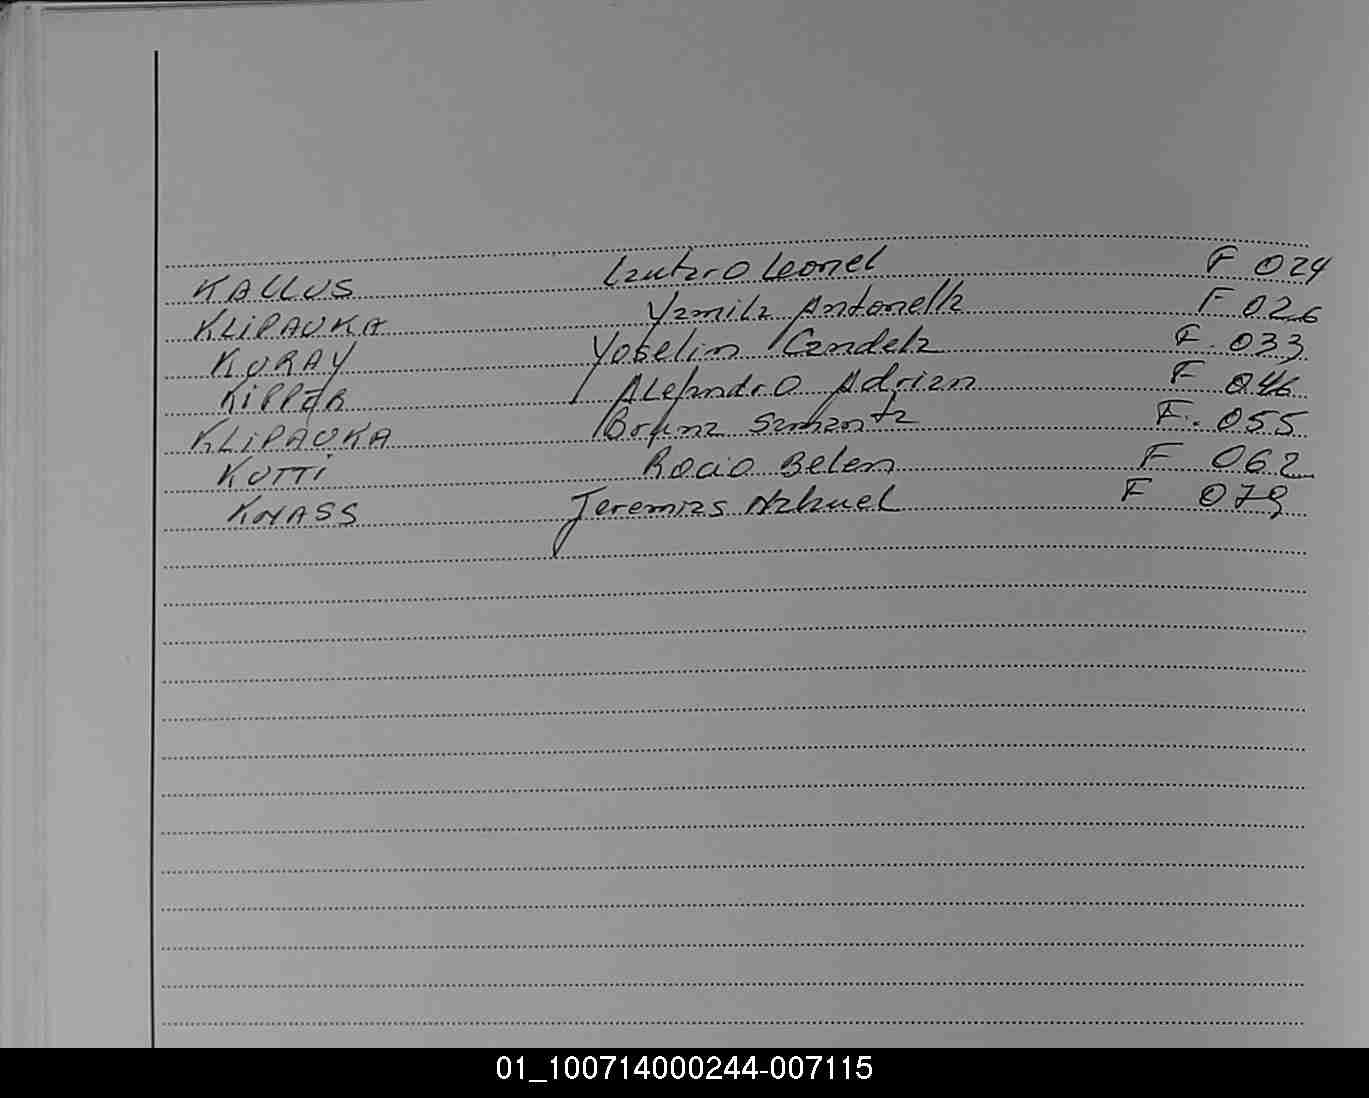 KALLUS Lautaro Leonel F 024
KLIPAUKA Yamila Antonella F 026
KURAY Yoselin Candela F. 033
KIPPER Alejandro Adrian F 046
KLIPAUKA Bruna Samanta F. 055
KUTTI Rocio Belen F 062
KNASS Jeremias Nahuel F 079
01_100714000244-007115